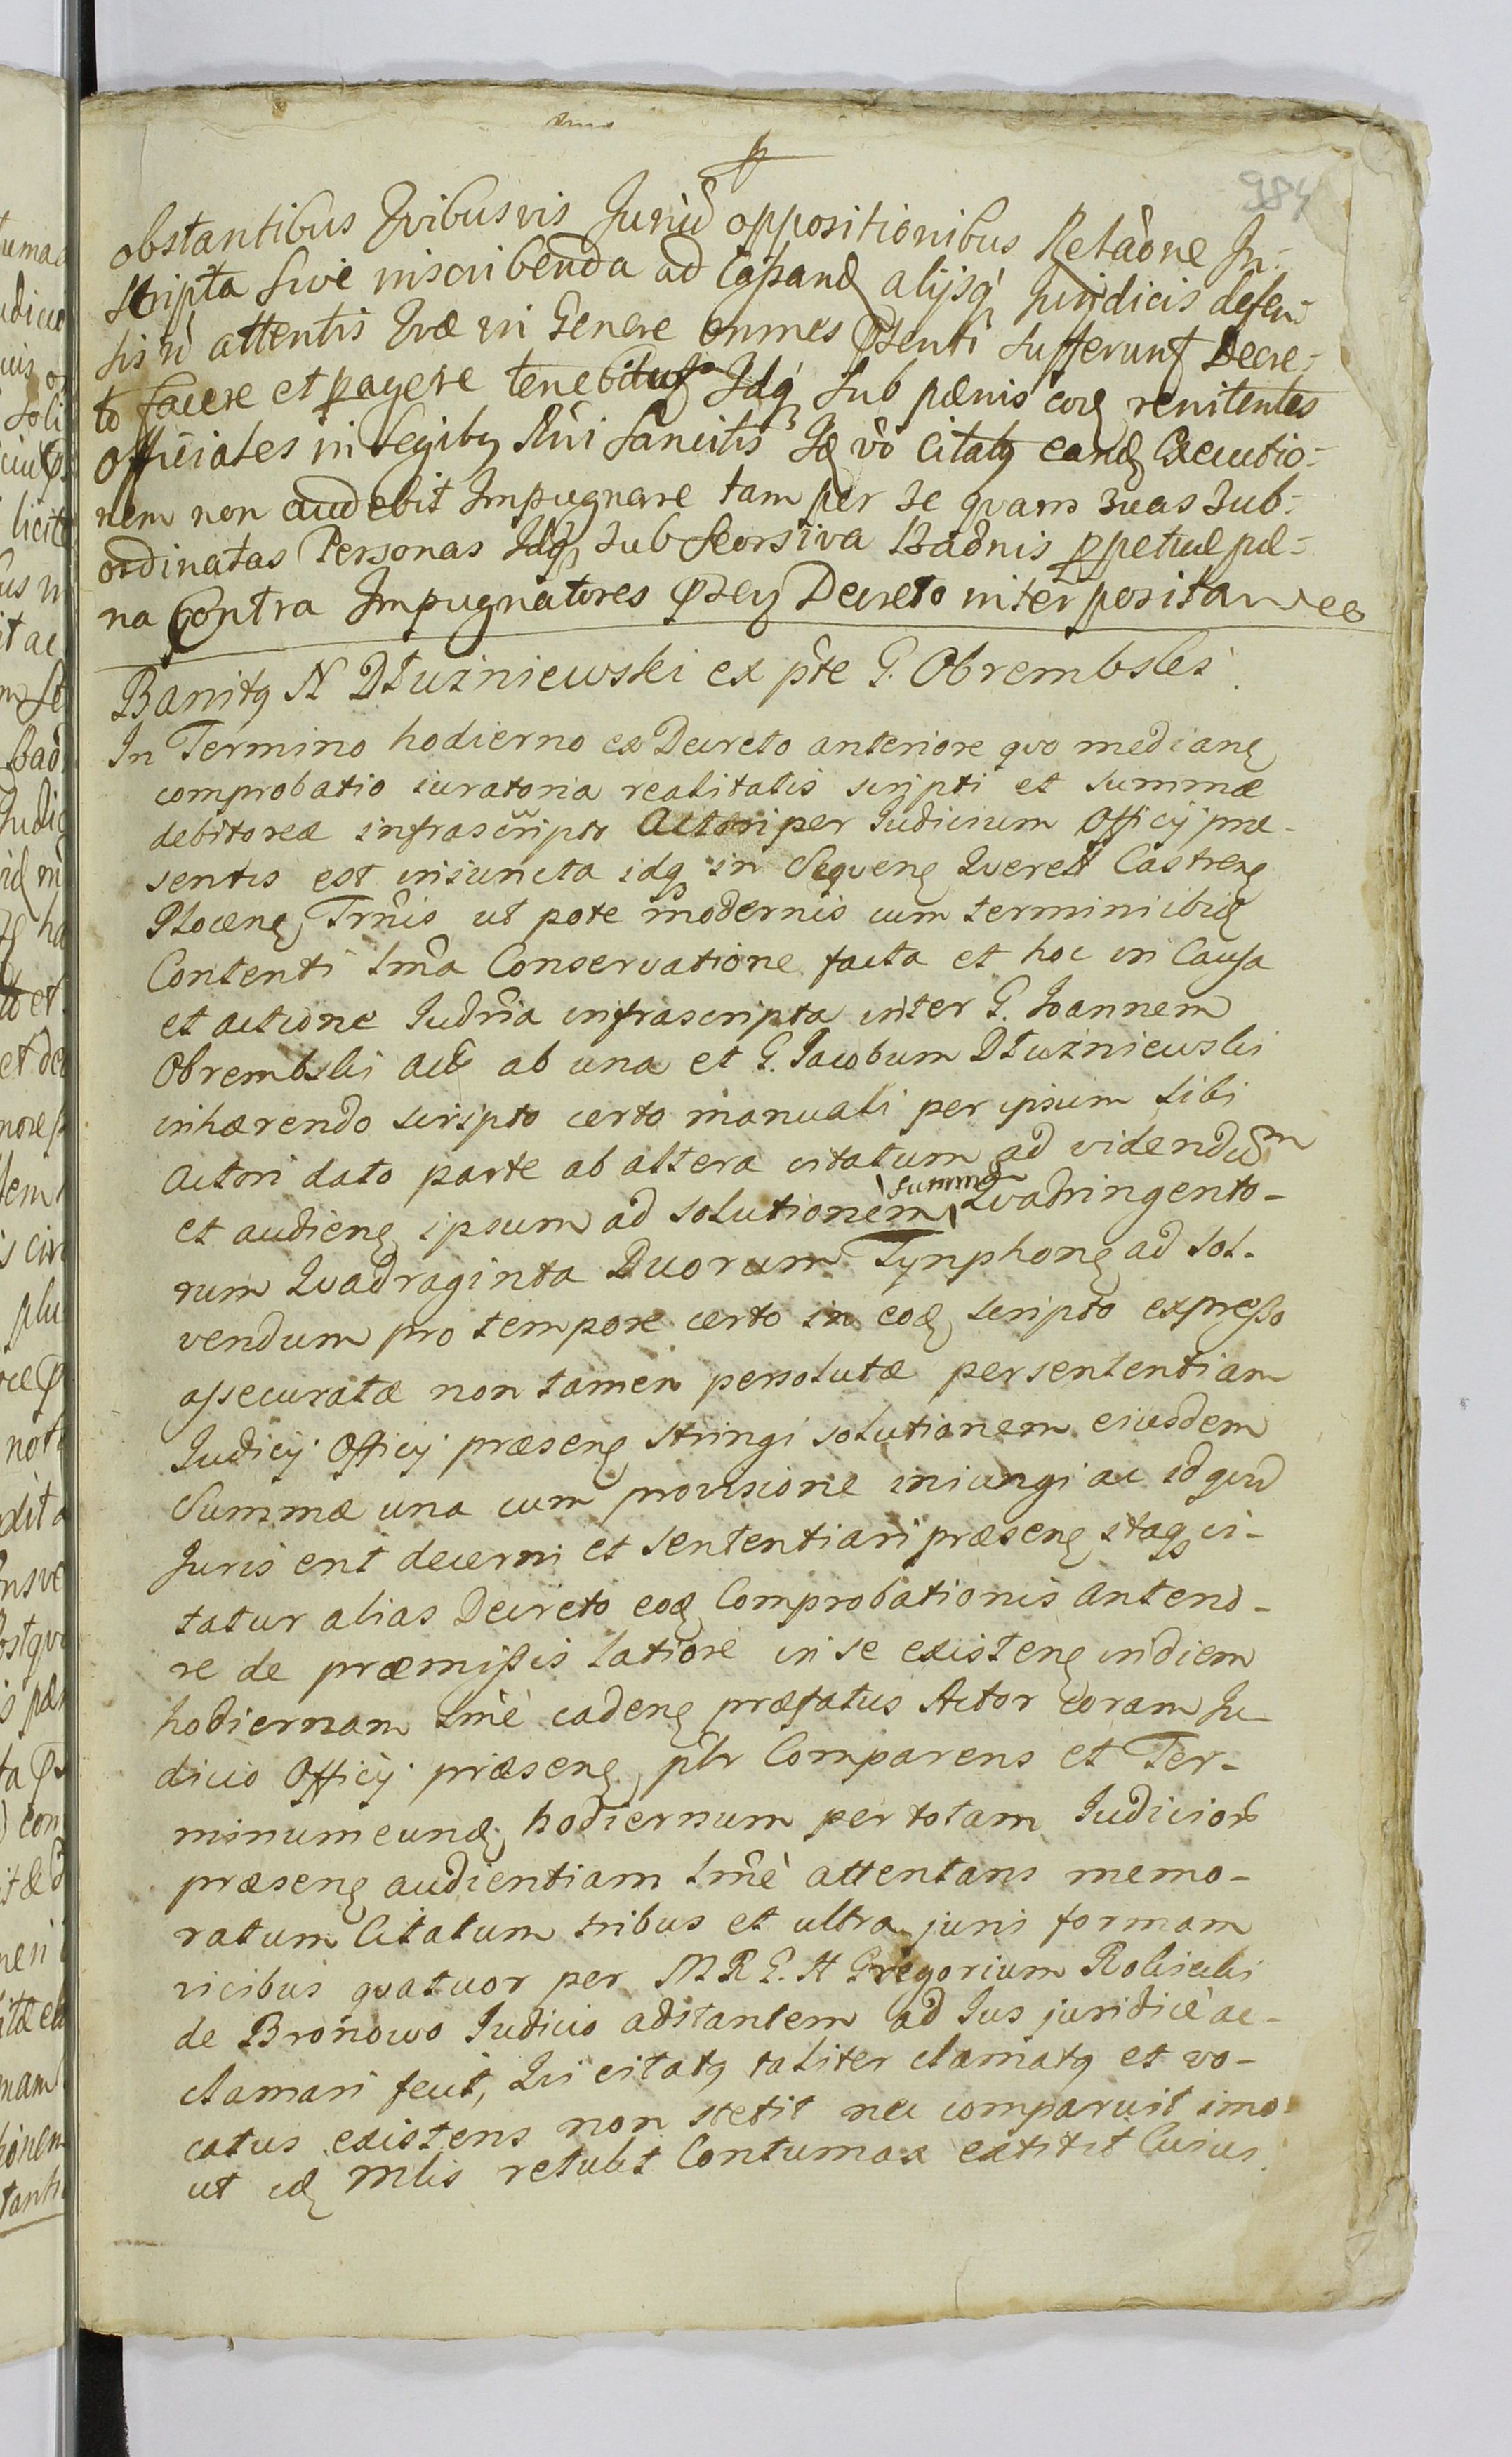 984
obstantibus Qvibusvis Jurid oppositionibus Relaône In-
scripta sive inscribenda ad Capiand alijsq Juridicis defen-
sis n attentis Qvæ in Genere omnes Psenti sufferunt Decre-
to facere et pagere tenebitur Idq sub pænis cor renitentes
Officiales in Legibq Rni Sancitis Id vo Citatq eand Executio-
nem non audebit Impugnare tam per se qvam suas sub-
ordinatas Personas Idq sub Seorsiva Badnis ppetuæ pæ-
na Contra Impugnatores Psen Decreto interposita
Banitq N Dłużniewski ex pte G. Obrembski
In Termino hodierno ex Decreto anteriore qvo median
comprobatio iuratoria realitatis scripti et summæ
debitoreæ infrascripto Actori per Judicium Officij præ-
sentis est iniuncta idq in Seqven Qverel Castren
Plocen Trnis ut pote modernis cum termini ibid
Contenti lma Conservatione facta et hoc in Causa
et actione Judria infrascripta inter G. Joannem
Obrembski act ab una et G. Jacobum Dłużniewski
inhærendo scripto certo manuali per ipsum sibi
Actori dato parte ab altera citatum ad videndum
et audien ipsum ad solutionem summæ Qvadringento-
rum Qvadraginta Duorum Tynphon ad sol-
vendum pro tempore certo in eod scripto expresso
assecuratæ non tamen persolutæ per sententiam
Judicij Officij præsen stringi solutionem eiusdem
Summæ una cum provisione iniungi ac id qvid
Juris erit decerni et sententiari præsen itaq ci-
tatur alias Decreto eod Comprobationis anterio-
re de præmissis latiore in se existen in diem
hodiernam lmè caden præfatus Actor coram Ju-
dicio Officij præsen plr Comparens et Ter-
minum eund hodiernum per totam Judicior
præsen audientiam lmè attentans memo-
ratum Citatum tribus et ultra juris formam
vicibus qvatuor per M R G. H Gregorium Rokicki
de Bronowo Judicio adstantem ad Jus juridicè ac-
clamari fecit, Qvi citatq taliter clamatq et vo-
catus existens non stetit nec comparuit imo
ut id Mlis retulit Contumax extitit Cuius